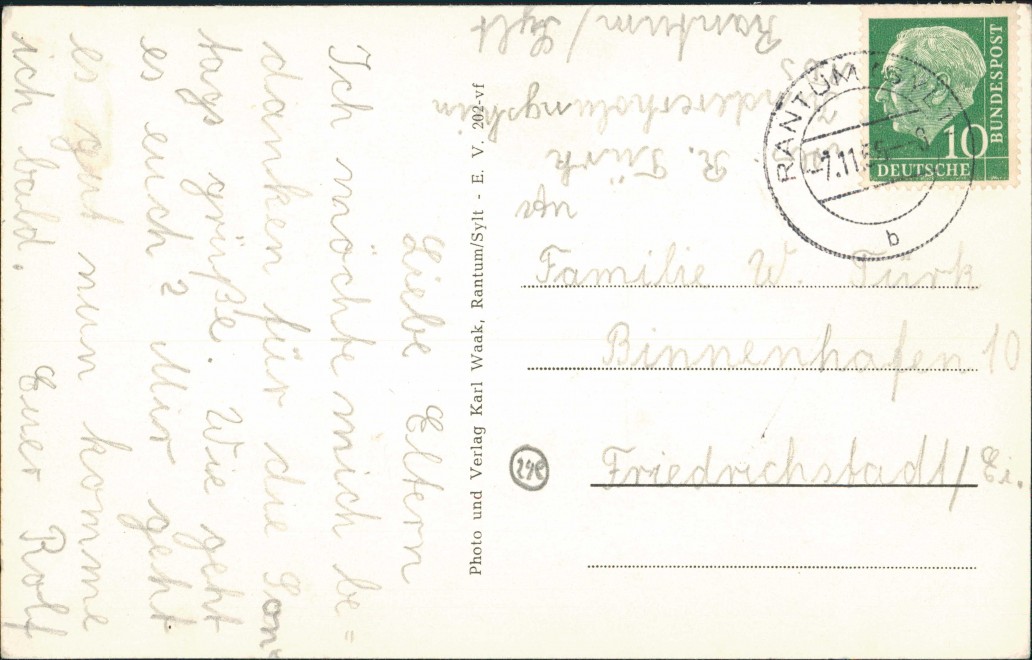 Liebe Eltern
Ich möchte mich be=
danken für die Son-
tags grüße. Wie geht
es euch? Mir geht
es gut nun komme
ich bald.
Euer Rolf
Photo und Verlag Karl Waak, Rantum/Sylt - E. V. 202-vf
Abs
R. Türk
Kindererholungsheim
Rantum / Sylt
RANTUM (SYLT)
-7.11.55-8
b
DEUTSCHE
BUNDESPOST
10
Familie W. Türk
Binnenhafen 10
Friedrichstadt/Ei.
24e